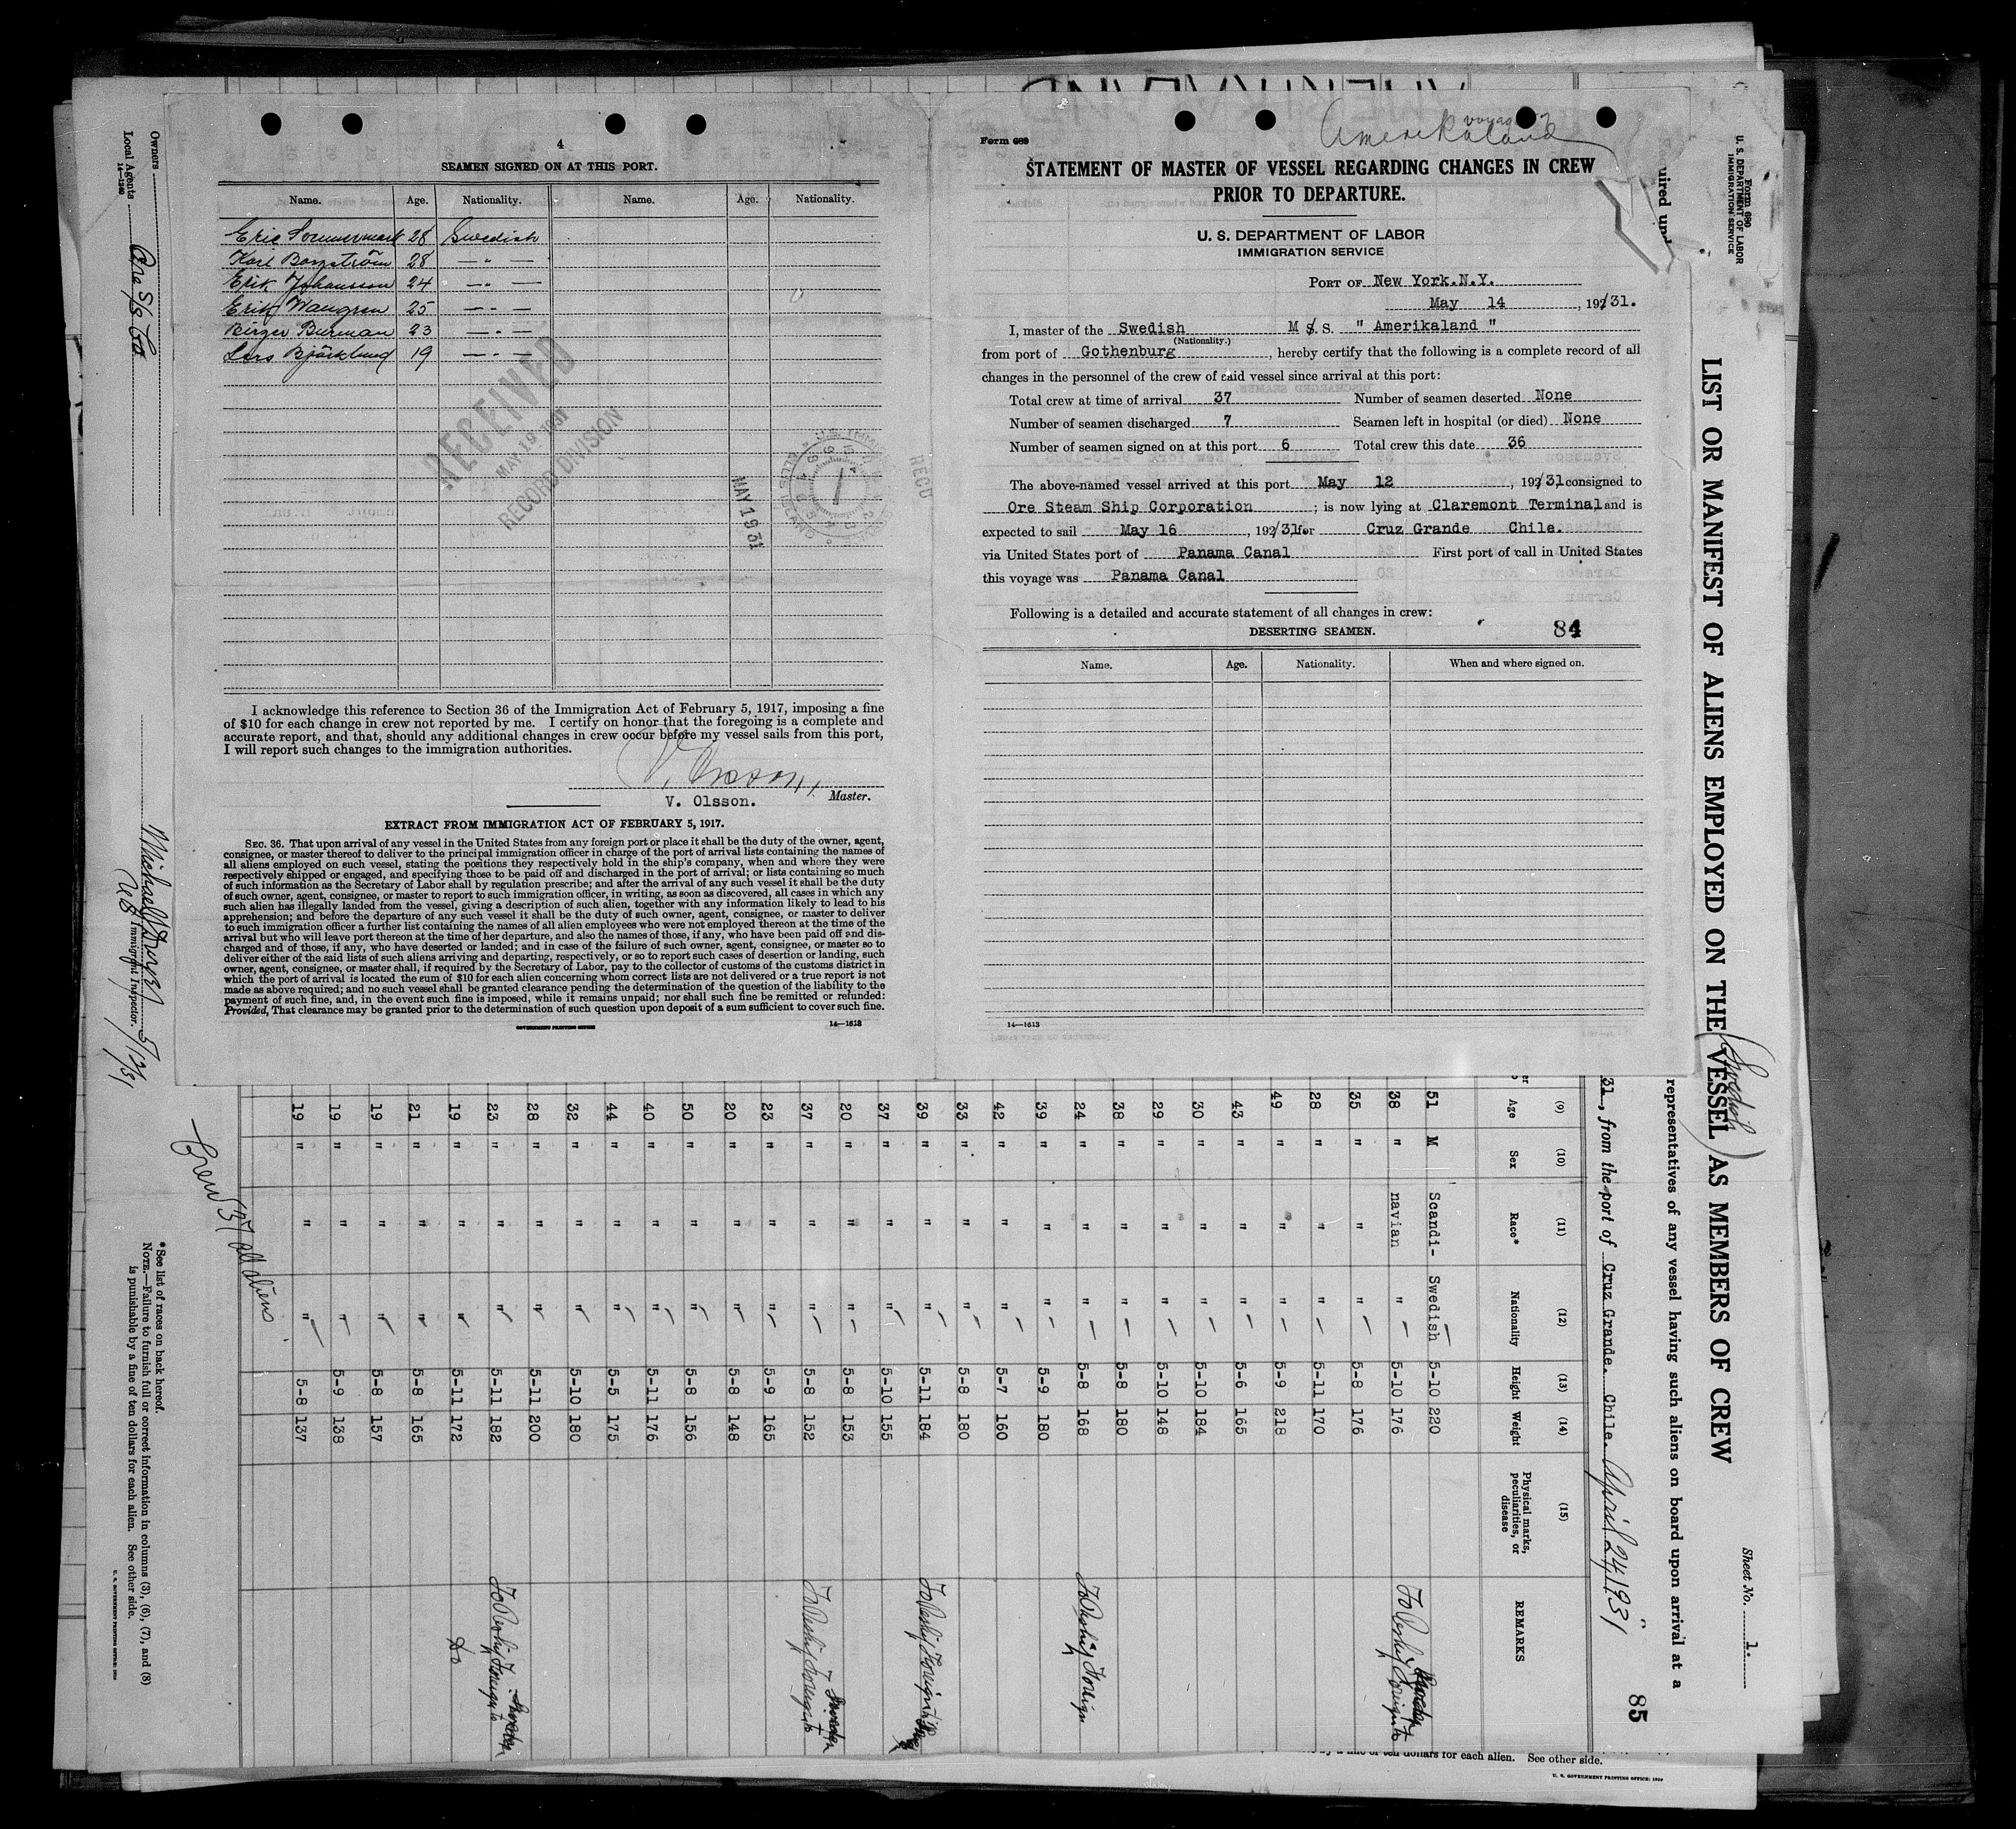 4
SEAMEN SIGNED ON AT THIS PORT.
Name. Age. Nationality. Name. Age. Nationality.
Eric 28 Swedish
Karl Bergström 28 — " —
Erik Johansson 24 — " —
Erik Wangren 25 — " —
Birger Burman 23 — " —
Lars Björklund 19 — " —
RECEIVED
MAY 19 1931
RECORD DIVISION
MAY 19 31
ELLIS ISLAND
REC'D
I acknowledge this reference to Section 36 of the Immigration Act of February 5, 1917, imposing a fine
of $10 for each change in crew not reported by me. I certify on honor that the foregoing is a complete and
accurate report, and that, should any additional changes in crew occur before my vessel sails from this port,
I will report such changes to the immigration authorities.
V. Olsson
V. Olsson. Master.
EXTRACT FROM IMMIGRATION ACT OF FEBRUARY 5, 1917.
SEC. 36. That upon arrival of any vessel in the United States from any foreign port or place it shall be the duty of the owner, agent,
consignee, or master thereof to deliver to the principal immigration officer in charge of the port of arrival lists containing the names of
all aliens employed on such vessel, stating the positions they respectively hold in the ship's company, when and where they were
respectively shipped or engaged, and specifying those to be paid off and discharged in the port of arrival; or lists containing so much
of such information as the Secretary of Labor shall by regulation prescribe; and after the arrival of any such vessel it shall be the duty
of such owner, agent, consignee, or master to report to such immigration officer, in writing, as soon as discovered, all cases in which any
such alien has illegally landed from the vessel, giving a description of such alien, together with any information likely to lead to his
apprehension; and before the departure of any such vessel it shall be the duty of such owner, agent, consignee, or master to deliver
to such immigration officer a further list containing the names of all alien employees who were not employed thereon at the time of the
arrival but who will leave port thereon at the time of her departure, and also the names of those, if any, who have been paid off and dis-
charged and of those, if any, who have deserted or landed; and in case of the failure of such owner, agent, consignee, or master so to
deliver either of the said lists of such aliens arriving and departing, respectively, or so to report such cases of desertion or landing, such
owner, agent, consignee, or master shall, if required by the Secretary of Labor, pay to the collector of customs of the customs district in
which the port of arrival is located the sum of $10 for each alien concerning whom correct lists are not delivered or a true report is not
made as above required; and no such vessel shall be granted clearance pending the determination of the question of the liability to the
payment of such fine, and, in the event such fine is imposed, while it remains unpaid; nor shall such fine be remitted or refunded:
Provided, That clearance may be granted prior to the determination of such question upon deposit of a sum sufficient to cover such fine.
GOVERNMENT PRINTING OFFICE 14—1613
Form 689
Amerikaland
STATEMENT OF MASTER OF VESSEL REGARDING CHANGES IN CREW
PRIOR TO DEPARTURE.
U. S. DEPARTMENT OF LABOR
IMMIGRATION SERVICE
PORT OF New York.N.Y.
May 14, 192/31.
I, master of the Swedish M S. S. " Amerikaland "
(Nationality.)
from port of Gothenburg, hereby certify that the following is a complete record of all
changes in the personnel of the crew of said vessel since arrival at this port:
Total crew at time of arrival 37 Number of seamen deserted None
Number of seamen discharged 7 Seamen left in hospital (or died) None
Number of seamen signed on at this port 6 Total crew this date 36
The above-named vessel arrived at this port May 12, 192/31, consigned to
Ore Steam Ship Corporation; is now lying at Claremont Terminal and is
expected to sail May 16, 192/31 for Cruz Grande Chile.
via United States port of Panama Canal First port of call in United States
this voyage was Panama Canal
Following is a detailed and accurate statement of all changes in crew:
DESERTING SEAMEN. 84
Name. Age. Nationality. When and where signed on.
14—1613
Form 680
U. S. DEPARTMENT OF LABOR
IMMIGRATION SERVICE
Sheet No. 1.
LIST OR MANIFEST OF ALIENS EMPLOYED ON THE VESSEL AS MEMBERS OF CREW
(Swedish)
uired und
representatives of any vessel having such aliens on board upon arrival at a
85
31, from the port of Cruz Grande. Chile. April 24, 1931
(9) (10) (11) (12) (13) (14) (15)
Age Sex Race* Nationality Height Weight Physical marks, peculiarities, or disease REMARKS
51 M Scandi- Swedish 5-10 220
38 " navian " 5-10 176 To Reship Foreign
35 " " " 5-8 176
28 " " " 5-11 170
49 " " " 5-9 218
43 " " " 5-6 165
30 " " " 5-10 184
29 " " " 5-10 148
38 " " " 5-8 180
24 " " " 5-8 168 To Reship Foreign
39 " " " 5-9 180
42 " " " 5-7 160
33 " " " 5-8 180
39 " " " 5-11 184 To Reship Foreign
37 " " " 5-10 155
20 " " " 5-8 153
37 " " " 5-8 152 To Reship Foreign to Sweden
23 " " " 5-9 165
20 " " " 5-8 148
50 " " " 5-8 156
40 " " " 5-11 176
44 " " " 5-5 175
32 " " " 5-10 180
28 " " " 5-11 200
23 " " " 5-11 182 To Reship Foreign to Sweden
19 " " " 5-11 172 Do
21 " " " 5-8 165
19 " " " 5-8 157
19 " " " 5-9 138
19 " " " 5-8 137
Crew 37 all aliens
*See list of races on back hereof.
NOTE.—Failure to furnish full or correct information in columns (3), (6), (7), and (8)
is punishable by a fine of ten dollars for each alien. See other side.
Owners
Local Agents Ore S/S Co
14—1240
U S Immigrant Inspector. 5/12/31
of ten dollars for each alien. See other side.
U. S. GOVERNMENT PRINTING OFFICE: 1930